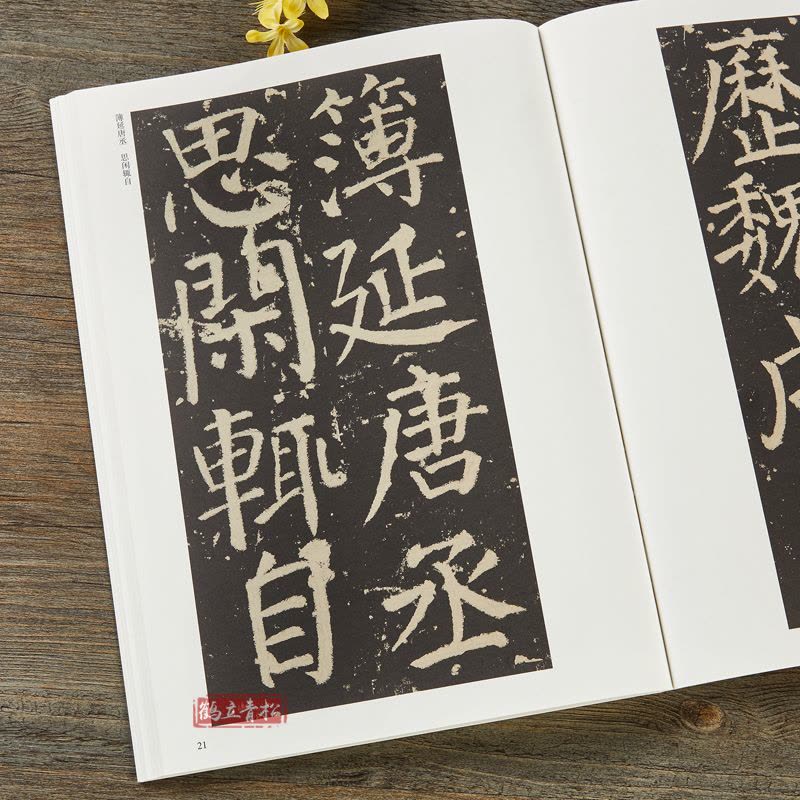 歷魏
簿延唐丞
思閑輒自
簿延唐丞 思闲辄自
鹤立青松
21